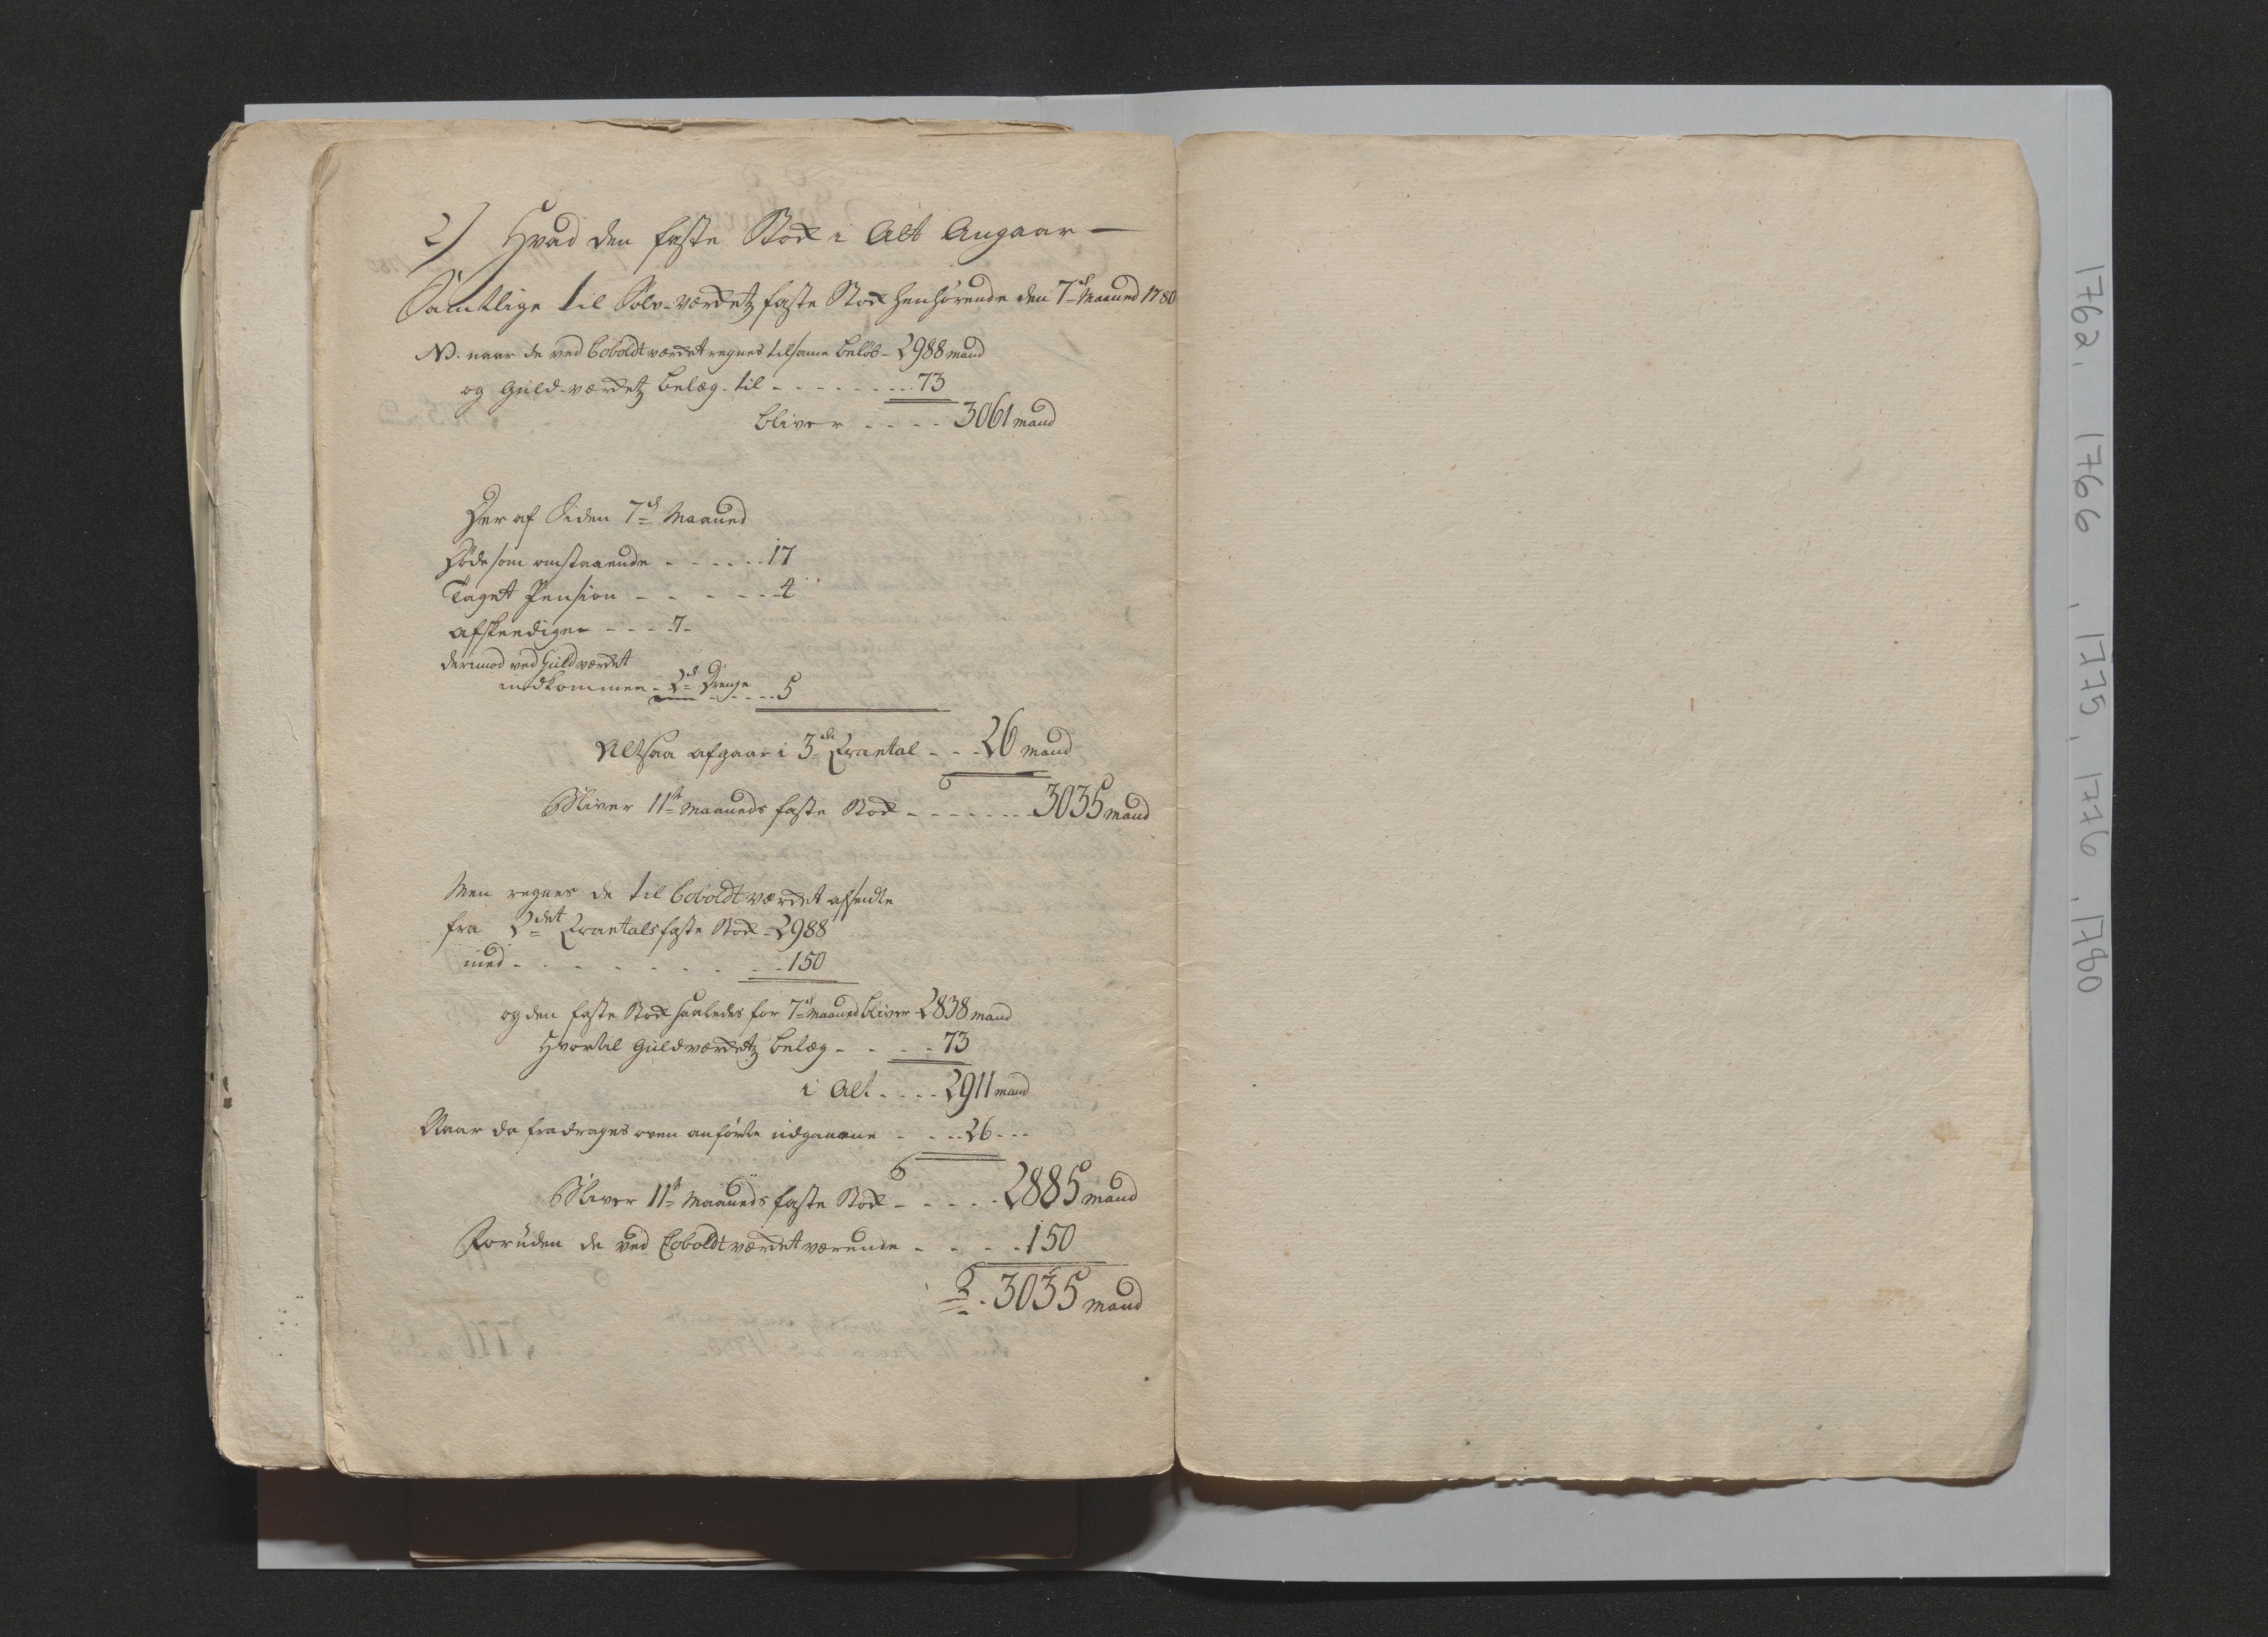 2) Hvad den faste Stok i Alt Angaar —
Samtlige til Sølv-værdets faste Stok henhørende den 7de Maaned 1780
NB. naar de ved Coboldtværdet regnes tilsame beløb - 2988 mand
og Guld-værdets belæg til - - - - - - - 73
bliver - - - - 3061 mand
Der af Siden 7de Maaned
Døde som omstaaende - - - - - - 17
Taget Pension - - - - - - 4
afskeediget - - - - 7 -
derimod ved Guldværdet
indkommen - 2de Drenge - - - - 5
Altsaa afgaar i 3de Qvartal - - - 26 mand
Bliver 11te Maaneds faste Stok - - - - - - - 3035 mand
Men regnes de til Coboldtværdet
fra 2det Qvartals faste Stok - 2988
med - - - - - - - - - 150
og den faste Stok saaledes for 7de Maaned bliver - 2838 mand
Hvortil Guldværdets belæg - - - - 73
i Alt - - - - 2911 mand
Naar da fradrages oven anførte udgaaene - - - - 26 - - -
Bliver 11te Maaneds faste Stok - - - - - 2885 mand
Foruden de ved Coboldtværdet værende - - - - 150
3035 mand
1762. 1766. 1775, 1776. 1780